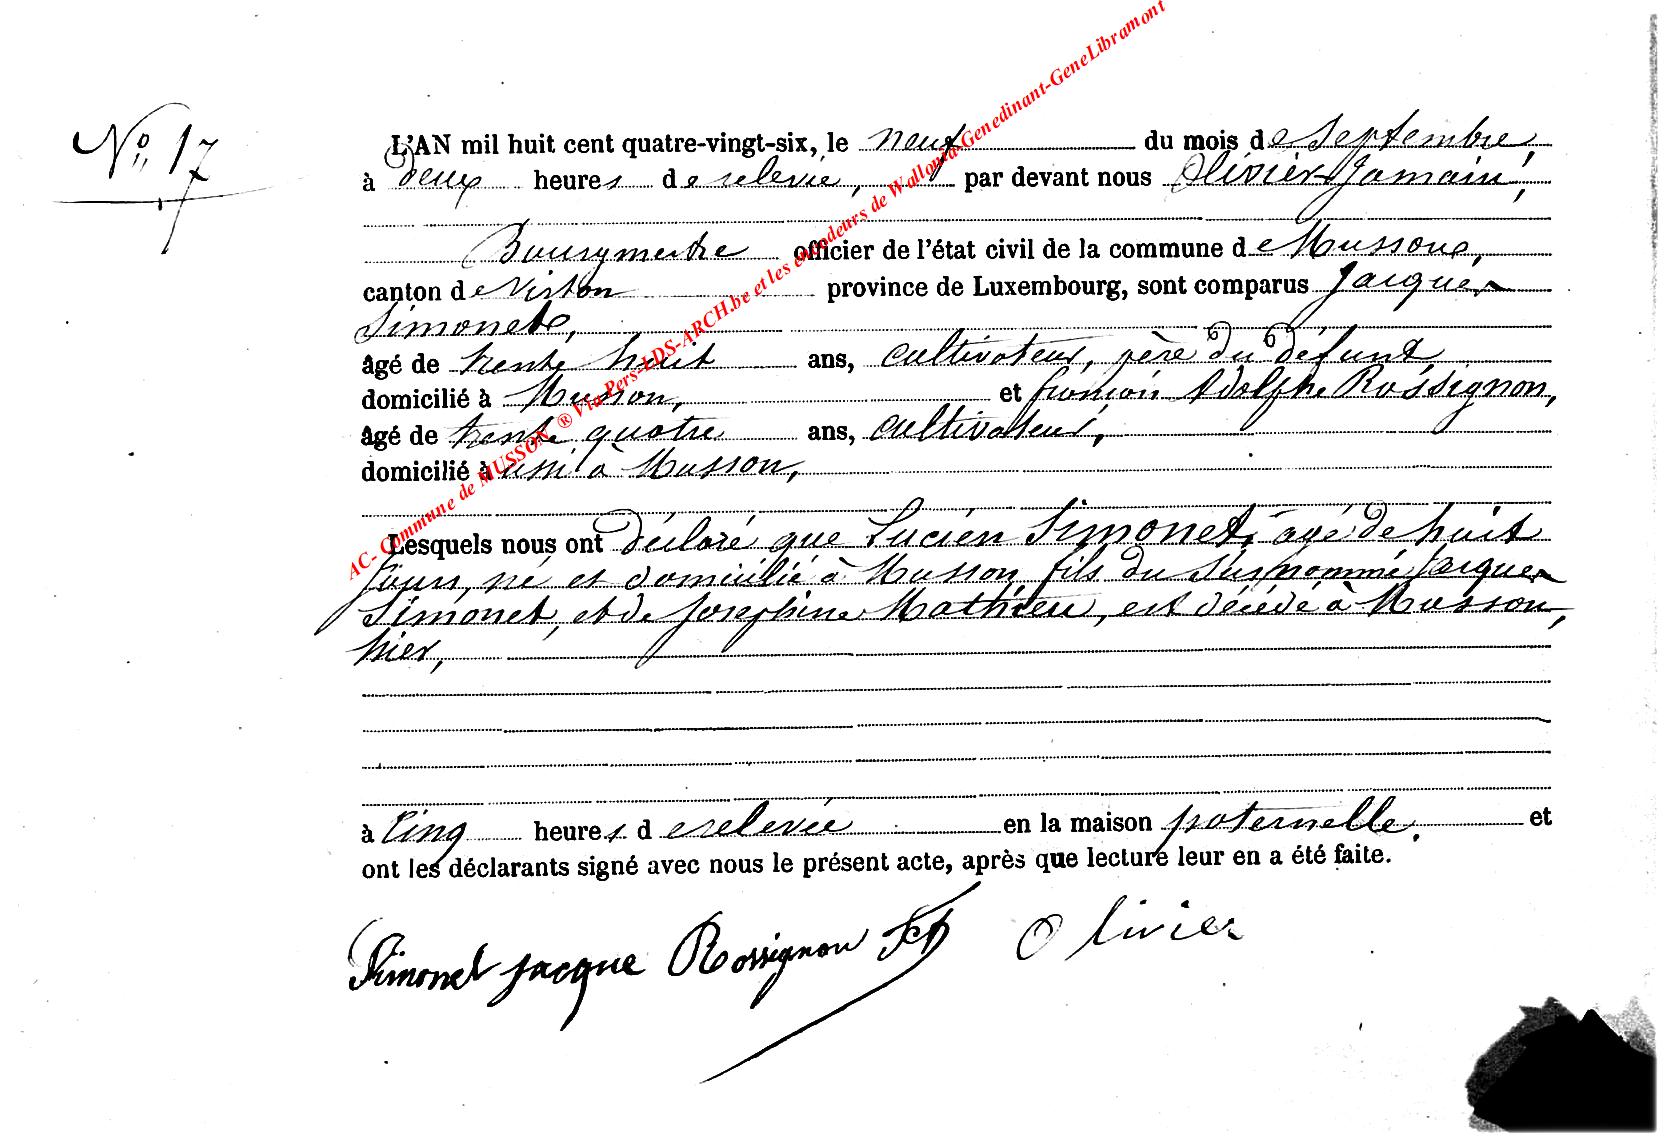 N° 17
L'AN mil huit cent quatre-vingt-six, le neuf du mois de septembre,
à deux heures de relevée, par devant nous Olivier Jamain,
Bourgmestre officier de l'état civil de la commune de Musson,
canton de Virton province de Luxembourg, sont comparus Jacques
Simonet,
âgé de trente huit ans, cultivateur, père du défunt,
domicilié à Musson, et françois Adolphe Rossignon,
âgé de trente quatre ans, cultivateur,
domicilié aussi à Musson,
Lesquels nous ont déclaré que Lucien Simonet, âgé de huit
jours, né et domicilié à Musson, fils du susnommé Jacques
Simonet, et de Joséphine Mathieu, est décédé à Musson,
hier,
à cinq heures de relevée en la maison paternelle. et
ont les déclarants signé avec nous le présent acte, après que lecture leur en a été faite.
Simonet jacque Rossignon Olivier
AC- Commune de MUSSON ® Via Pers-LDS-ARCH.be et les encodeurs de Wallonia-Genedinant-GeneLibramont